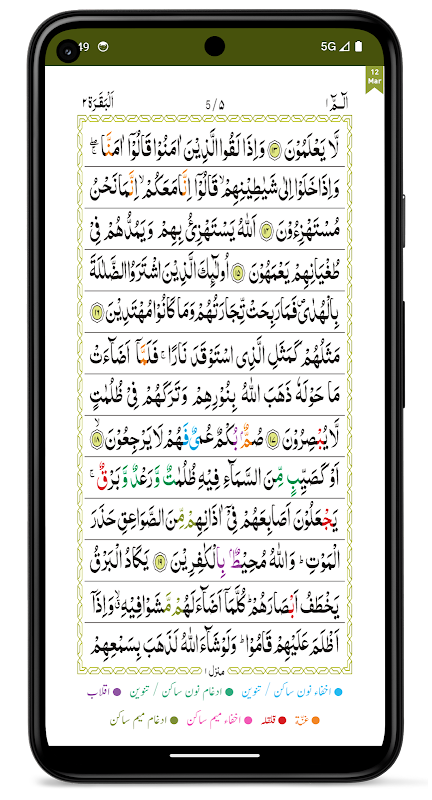 49 5G
12
Mar
اَلْبَقَرَة ٢ 5/۵ الٓـمّٓ ١
لَّا يَعْلَمُوْنَ ﴿١٣﴾ وَاِذَا لَقُوا الَّذِيْنَ اٰمَنُوْا قَالُوْٓا اٰمَنَّا ۖۚ
وَاِذَا خَلَوْا اِلٰى شَيٰطِيْنِهِمْ ۙ قَالُوْٓا اِنَّا مَعَكُمْ ۙ اِنَّمَا نَحْنُ
مُسْتَهْزِءُوْنَ ﴿١٤﴾ اَللّٰهُ يَسْتَهْزِئُ بِهِمْ وَيَمُدُّهُمْ فِيْ
طُغْيَانِهِمْ يَعْمَهُوْنَ ﴿١٥﴾ اُولٰٓئِكَ الَّذِيْنَ اشْتَرَوُا الضَّلٰلَةَ
بِالْهُدٰى ۪ فَمَا رَبِحَتْ تِّجَارَتُهُمْ وَمَا كَانُوْا مُهْتَدِيْنَ ﴿١٦﴾
مَثَلُهُمْ كَمَثَلِ الَّذِى اسْتَوْقَدَ نَارًا ۚ فَلَمَّآ اَضَآءَتْ
مَا حَوْلَهٗ ذَهَبَ اللّٰهُ بِنُوْرِهِمْ وَتَرَكَهُمْ فِيْ ظُلُمٰتٍ
لَّا يُبْصِرُوْنَ ﴿١٧﴾ صُمٌّۢ بُكْمٌ عُمْيٌ فَهُمْ لَا يَرْجِعُوْنَ ﴿١٨﴾
اَوْ كَصَيِّبٍ مِّنَ السَّمَآءِ فِيْهِ ظُلُمٰتٌ وَّرَعْدٌ وَّبَرْقٌ ۚ
يَجْعَلُوْنَ اَصَابِعَهُمْ فِيْٓ اٰذَانِهِمْ مِّنَ الصَّوَاعِقِ حَذَرَ
الْمَوْتِ ؕ وَاللّٰهُ مُحِيْطٌۢ بِالْكٰفِرِيْنَ ﴿١٩﴾ يَكَادُ الْبَرْقُ
يَخْطَفُ اَبْصَارَهُمْ ؕ كُلَّمَآ اَضَآءَ لَهُمْ مَّشَوْا فِيْهِ ۙ وَاِذَآ
اَظْلَمَ عَلَيْهِمْ قَامُوْا ؕ وَلَوْ شَآءَ اللّٰهُ لَذَهَبَ بِسَمْعِهِمْ
منزل ١
اخفاء نون ساکن / تنوین ادغام نون ساکن / تنوین اقلاب
غنّة قلقله اخفاء میم ساکن ادغام میم ساکن